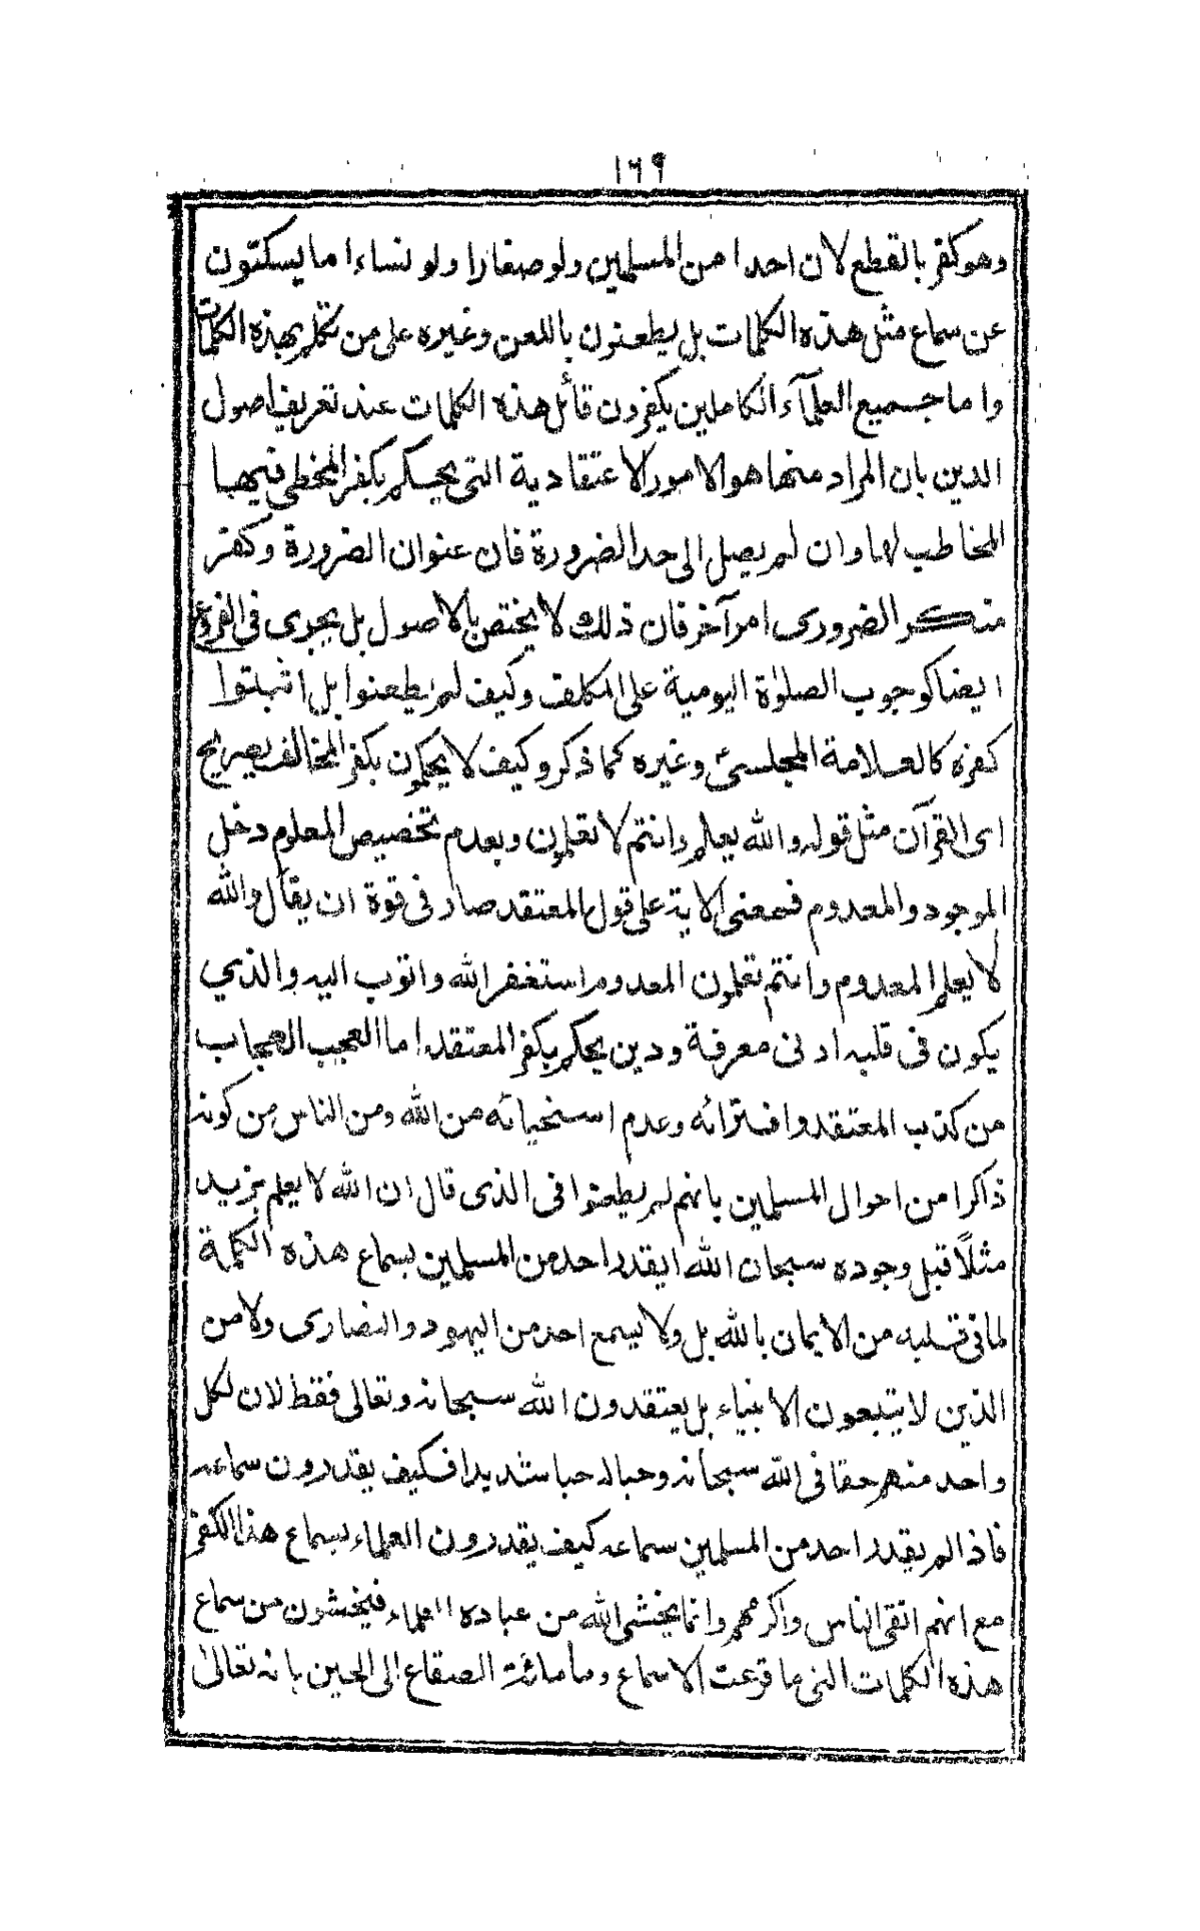 ١٦٩
وهو كفر بالقطع لان احدا من المسلمين ولو صغارا ولو نساء اما يسكتون
عن سماع مثل هذه الكلمات بل يطعنون باللعن وغيره على من تكلم بهذه الكلمات
واما جميع العلمآء الكاملين يكفرون قائل هذه الكلمات عند تعريف اصول
الدين بان المراد منها هو الامور الاعتقادية التى يحكم بكفر المخطى فيها
المخاطب لها وان لم يصل الى حد الضرورة فان عنوان الضرورة وكفر
منكر الضرورى امر آخر فان ذلك لا يختص بالاصول بل يجرى فى الفروع
ايضا كوجوب الصلوٰة اليومية على المكلف وكيف لم يطعنوا بل اثبتوا
كفره كالعلامة المجلسى وغيره كما ذكر وكيف لا يحكمون بكفر المخالف بصريح
اى القرآن مثل قوله والله يعلم وانتم لا تعلمون وبعدم تخصيص المعلوم دخل
الموجود والمعدوم فمعنى الاية على قول المعتقد صار فى قوة ان يقال والله
لا يعلم المعدوم وانتم تعلمون المعدوم استغفر الله واتوب اليه والذي
يكون فى قلبه ادنى معرفة ودين يحكم بكفر المعتقد اما العجب العجاب
من كذب المعتقد وافترائه وعدم استحيائه من الله ومن الناس من كونه
ذاكرا من احوال المسلمين بانهم لم يطعنوا فى الذى قال ان الله لا يعلم بزيد
مثلاً قبل وجوده سبحان الله ايقدر احد من المسلمين بسماع هذه الكلمة
لما فى قلبه من الايمان بالله بل ولا يسمع احد من اليهود والنصارى ولا من
الذين لا يتبعون الانبياء بل يعتقدون الله سبحانه وتعالى فقط لان لكل
واحد منهم حقا فى الله سبحانه وحبا له حبا شديدا فكيف يقدرون سماعه
فاذا لم يقدر احد من المسلمين سماعه كيف يقدرون العلماء بسماع هذا الكفر
مع انهم اتقى الناس واكرمهم وانما يخشى الله من عباده العلماء فيخشون من سماع
هذه الكلمات التى ما قرعت الاسماع وما ملئت الصقاع الى الحين بانه تعالىٰ